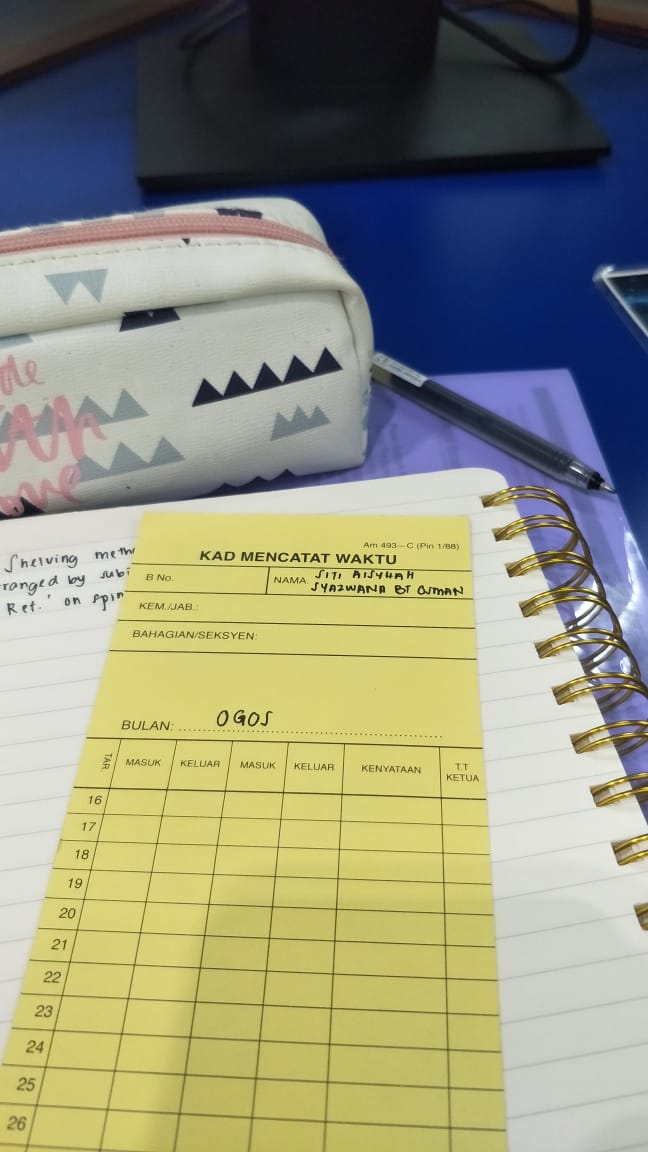 Shelving meth
ranged by subj
Ret.' on spin
Am 493-C (Pin 1/88)
KAD MENCATAT WAKTU
B No.
NAMA SITI AISYHAH
SYAZWANA BT OSMAN
KEM./JAB.:
BAHAGIAN/SEKSYEN:
BULAN: OGOS
TAR. MASUK KELUAR MASUK KELUAR KENYATAAN T.T KETUA
16
17
18
19
20
21
22
23
24
25
26